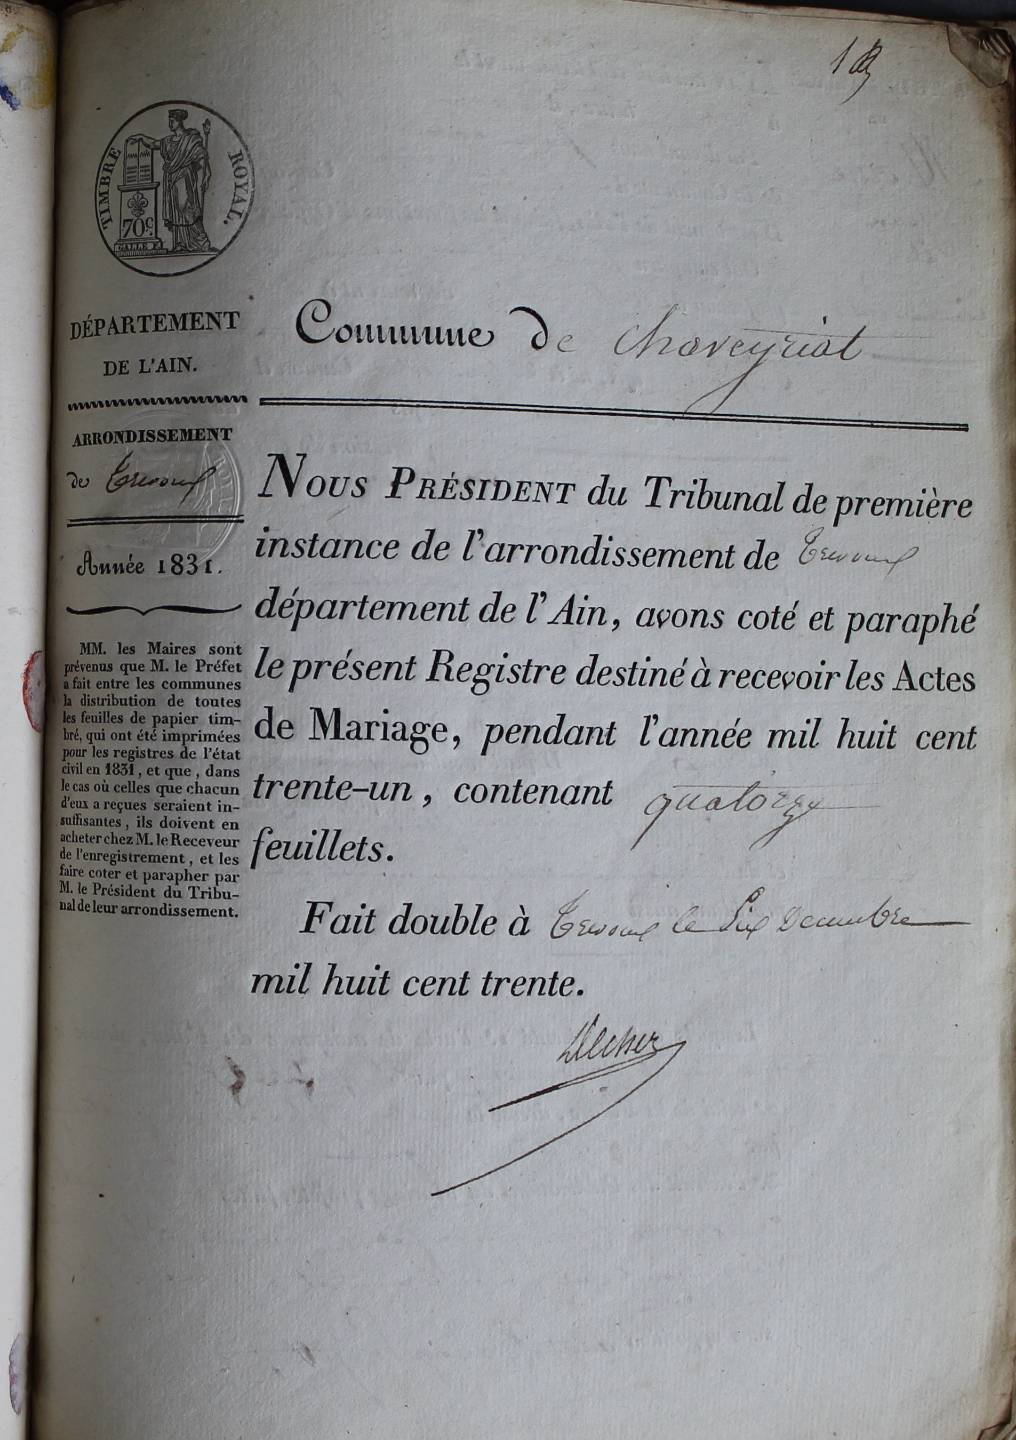 1
TIMBRE ROYAL.
70 c
DÉPARTEMENT
DE L'AIN.
ARRONDISSEMENT
de Trevoux
Année 1831.
MM. les Maires sont
prévenus que M. le Préfet
a fait entre les communes
la distribution de toutes
les feuilles de papier tim-
bré, qui ont été imprimées
pour les registres de l'état
civil en 1831, et que, dans
le cas où celles que chacun
d'eux a reçues seraient in-
suffisantes, ils doivent en
acheter chez M. le Receveur
de l'enregistrement, et les
faire coter et parapher par
M. le Président du Tribu-
nal de leur arrondissement.
Commune de Chaveyriat
NOUS PRÉSIDENT du Tribunal de première
instance de l'arrondissement de Trevoux
département de l'Ain, avons coté et paraphé
le présent Registre destiné à recevoir les Actes
de Mariage, pendant l'année mil huit cent
trente-un, contenant quatorze
feuillets.
Fait double à Trevoux le Six Decembre
mil huit cent trente.